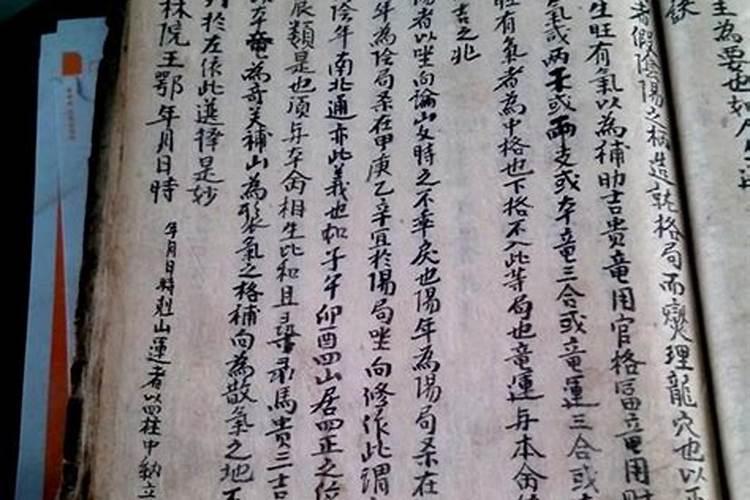 主為要也如人生
訣
者假陰陽之柄造就格局而燮理龍穴也以
生旺有氣以為補助吉貴竜用官格冨竜用財
氣或两干或两支或夲竜三合或竜運三合或
旺有氣者為中格也下格不入此等局也竜運与本命
吉之兆
陽者以坐向論山女時之不乖戾也陽年為陽局系在
年為陰局系在甲庚乙辛宜於陽局坐向修作此謂
陰年南北通亦此義也如子午卯酉四山居四正之位
辰類是也須与夲命相生比和且尋彔馬貴三吉
夲竜為竒美補山為聚氣之格補向為散氣之地
於左依此選擇是妙
林院王鄂年月日時
年月日時尅山運者以四柱中納